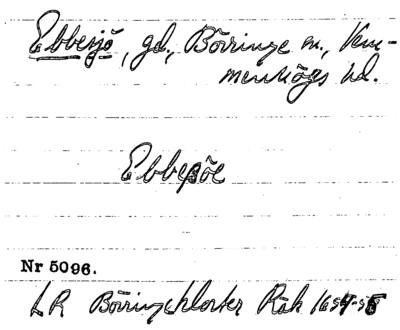 Ebbesjö, gd, Börringe sn., Vem-
menhögs hd.
Ebbesöe
Nr 5096.
LR Börringekloster Räk 1654-55